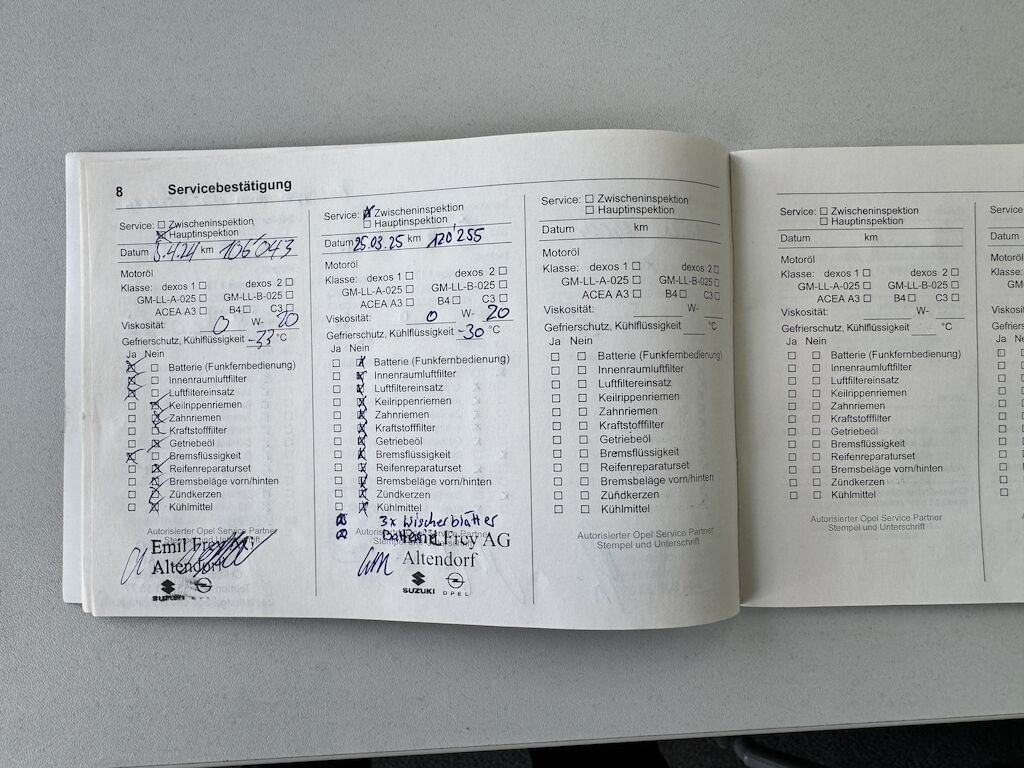 8 Servicebestätigung
Service: Zwischeninspektion
Hauptinspektion
Datum 5.4.24 km 106'043
Motoröl
Klasse: dexos 1 dexos 2
GM-LL-A-025 GM-LL-B-025
ACEA A3 B4 C3
Viskosität: 0 W- 20
Gefrierschutz, Kühlflüssigkeit -33 °C
Ja Nein
Batterie (Funkfernbedienung)
Innenraumluftfilter
Luftfiltereinsatz
Keilrippenriemen
Zahnriemen
Kraftstofffilter
Getriebeöl
Bremsflüssigkeit
Reifenreparaturset
Bremsbeläge vorn/hinten
Zündkerzen
Kühlmittel
Autorisierter Opel Service Partner
Stempel und Unterschrift
Emil Frey
Altendorf
SUZUKI
Service: Zwischeninspektion
Hauptinspektion
Datum 25.03.25 km 120'255
Motoröl
Klasse: dexos 1 dexos 2
GM-LL-A-025 GM-LL-B-025
ACEA A3 B4 C3
Viskosität: 0 W- 20
Gefrierschutz, Kühlflüssigkeit -30 °C
Ja Nein
Batterie (Funkfernbedienung)
Innenraumluftfilter
Luftfiltereinsatz
Keilrippenriemen
Zahnriemen
Kraftstofffilter
Getriebeöl
Bremsflüssigkeit
Reifenreparaturset
Bremsbeläge vorn/hinten
Zündkerzen
Kühlmittel
3x Wischerblätter
Batterie
Autorisierter Opel Service Partner
Stempel und Unterschrift
Emil Frey AG
Altendorf
SUZUKI OPEL
Service: Zwischeninspektion
Hauptinspektion
Datum km
Motoröl
Klasse: dexos 1 dexos 2
GM-LL-A-025 GM-LL-B-025
ACEA A3 B4 C3
Viskosität: W-
Gefrierschutz, Kühlflüssigkeit °C
Ja Nein
Batterie (Funkfernbedienung)
Innenraumluftfilter
Luftfiltereinsatz
Keilrippenriemen
Zahnriemen
Kraftstofffilter
Getriebeöl
Bremsflüssigkeit
Reifenreparaturset
Bremsbeläge vorn/hinten
Zündkerzen
Kühlmittel
Autorisierter Opel Service Partner
Stempel und Unterschrift
Service: Zwischeninspektion
Hauptinspektion
Datum km
Motoröl
Klasse: dexos 1 dexos 2
GM-LL-A-025 GM-LL-B-025
ACEA A3 B4 C3
Viskosität: W-
Gefrierschutz, Kühlflüssigkeit °C
Ja Nein
Batterie (Funkfernbedienung)
Innenraumluftfilter
Luftfiltereinsatz
Keilrippenriemen
Zahnriemen
Kraftstofffilter
Getriebeöl
Bremsflüssigkeit
Reifenreparaturset
Bremsbeläge vorn/hinten
Zündkerzen
Kühlmittel
Autorisierter Opel Service Partner
Stempel und Unterschrift
Datum
Ja